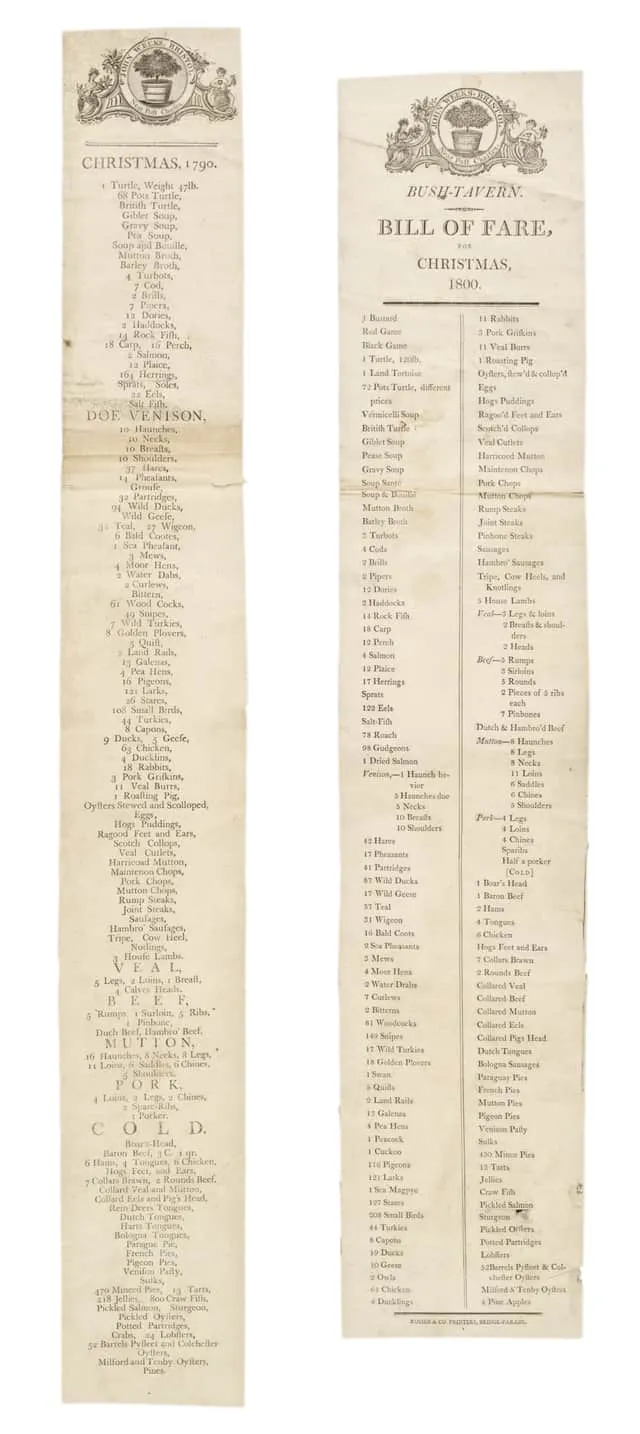 JOHN WEEKS·BRISTOL
Neat Post Chaises
CHRISTMAS, 1790.
1 Turtle, Weight 47lb.
68 Pots Turtle,
Britiſh Turtle,
Giblet Soup,
Gravy Soup,
Pea Soup,
Soup and Bouille,
Mutton Broth,
Barley Broth,
4 Turbots,
7 Cod,
2 Brills,
7 Pipers,
12 Dories,
2 Haddocks,
14 Rock Fiſh,
18 Carp, 16 Perch,
2 Salmon,
12 Plaice,
164 Herrings,
Sprats, Soles,
22 Eels,
Salt Fiſh.
DOE VENISON,
10 Haunches,
10 Necks,
10 Breaſts,
10 Shoulders,
37 Hares,
14 Pheaſants,
Grouſe,
32 Partridges,
94 Wild Ducks,
Wild Geeſe,
32 Teal, 27 Wigeon,
6 Bald Cootes,
1 Sea Pheaſant,
3 Mews,
4 Moor Hens,
2 Water Dabs,
2 Curlews,
Bittern,
61 Wood Cocks,
49 Snipes,
7 Wild Turkies,
8 Golden Plovers,
5 Quiſt,
2 Land Rails,
13 Galenas,
4 Pea Hens,
16 Pigeons,
121 Larks,
26 Stares,
108 Small Birds,
44 Turkies,
8 Capons,
9 Ducks, 5 Geeſe,
63 Chicken,
4 Ducklins,
18 Rabbits,
3 Pork Griſkins,
11 Veal Burrs,
1 Roaſting Pig,
Oyſters Stewed and Scolloped,
Eggs,
Hogs Puddings,
Ragood Feet and Ears,
Scotch Collops,
Veal Cutlets,
Harricoad Mutton,
Maintenon Chops,
Pork Chops,
Mutton Chops,
Rump Steaks,
Joint Steaks,
Sauſages,
Hambro' Sauſages,
Tripe, Cow Heel,
Notlings,
3 Houſe Lambs.
VEAL,
5 Legs, 2 Loins, 1 Breaſt,
4 Calves Heads.
BEEF,
5 Rumps, 1 Surloin, 5 Ribs,
1 Pinbone,
Duch Beef, Hambro' Beef.
MUTTON,
16 Haunches, 8 Necks, 8 Legs,
11 Loins, 6 Saddles, 6 Chines,
5 Shoulders.
PORK,
4 Loins, 2 Legs, 2 Chines,
2 Spare-Ribs,
1 Porker.
COLD.
Boar's-Head,
Baron Beef, 3 C. 1 qr.
6 Hams, 4 Tongues, 6 Chicken,
Hogs Feet, and Ears,
7 Collars Brawn, 2 Rounds Beef,
Collard Veal and Mutton,
Collard Eels and Pig's Head,
Rein Deers Tongues,
Dutch Tongues,
Harts Tongues,
Bologna Tongues,
Parague Pie,
French Pies,
Pigeon Pies,
Veniſon Paſty,
Sulks,
470 Minced Pies, 13 Tarts,
218 Jellies, 800 Craw Fiſh,
Pickled Salmon, Sturgeon,
Pickled Oyſters,
Potted Partridges,
Crabs, 24 Lobſters,
52 Barrels Pyfleet and Colcheſter
Oyſters,
Milford and Tenby Oyſters,
Pines.
JOHN WEEKS·BRISTOL
Neat Post Chaises
BUSH-TAVERN.
BILL OF FARE,
FOR
CHRISTMAS,
1800.
1 Bustard
Red Game
Black Game
1 Turtle, 120lb.
1 Land Tortoise
72 Pots Turtle, different
prices
Vermicelli Soup
British Turtle
Giblet Soup
Pease Soup
Gravy Soup
Soup Santé
Soup & Bouillé
Mutton Broth
Barley Broth
3 Turbots
4 Cods
2 Brills
2 Pipers
12 Dories
2 Haddocks
14 Rock Fiſh
18 Carp
12 Perch
4 Salmon
12 Plaice
17 Herrings
Sprats
122 Eels
Salt-Fiſh
78 Roach
98 Gudgeons
1 Dried Salmon
Venison,—1 Haunch be-
vior
5 Haunches doe
5 Necks
10 Breaſts
10 Shoulders
42 Hares
17 Pheasants
41 Partridges
87 Wild Ducks
17 Wild Geese
37 Teal
31 Wigeon
16 Bald Coots
2 Sea Pheasants
3 Mews
4 Moor Hens
2 Water Drabs
7 Curlews
2 Bitterns
81 Woodcocks
149 Snipes
17 Wild Turkies
18 Golden Plovers
1 Swan
5 Quiſts
2 Land Rails
13 Galenas
4 Pea Hens
1 Peacock
1 Cuckoo
116 Pigeons
121 Larks
1 Sea Magpye
127 Stares
208 Small Birds
44 Turkies
8 Capons
19 Ducks
10 Geese
2 Owls
61 Chicken
4 Ducklings
11 Rabbits
3 Pork Griſkins
11 Veal Burrs
1 Roasting Pig
Oyſters, ſtew'd & collop'd
Eggs
Hogs Puddings
Ragoo'd Feet and Ears
Scotch'd Collops
Veal Cutlets
Harricoed Mutton
Maintenon Chops
Pork Chops
Mutton Chops
Rump Steaks
Joint Steaks
Pinbone Steaks
Sausages
Hambro' Sausages
Tripe, Cow Heels, and
Knotlings
5 House Lambs
Veal—3 Legs & loins
2 Breaſts & shoul-
ders
2 Heads
Beef—5 Rumps
3 Sirloins
5 Rounds
2 Pieces of 5 ribs
each
7 Pinbones
Dutch & Hambro'd Beef
Mutton—8 Haunches
8 Legs
8 Necks
11 Loins
6 Saddles
6 Chines
5 Shoulders
Pork—4 Legs
4 Loins
4 Chines
Sparibs
Half a porker
[COLD]
1 Boar's Head
1 Baron Beef
2 Hams
4 Tongues
6 Chicken
Hogs Feet and Ears
7 Collars Brawn
2 Rounds Beef
Collared Veal
Collared Beef
Collared Mutton
Collared Eels
Collared Pigs Head
Dutch Tongues
Bologna Sausages
Paraguay Pies
French Pies
Mutton Pies
Pigeon Pies
Venison Paſty
Sulks
430 Mince Pies
13 Tarts
Jellies
Craw Fiſh
Pickled Salmon
Sturgeon
Pickled Oiſters
Potted Partridges
Lobſters
52 Barrels Pyfleet & Col-
cheſter Oyſters
Milford & Tenby Oyſters
4 Pine Apples
PRINTERS, BRIDGE-PARADE.